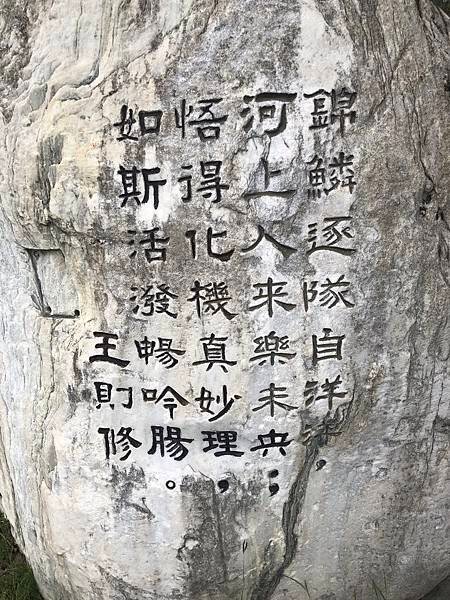 錦鱗逐隊自洋洋，
河上人来樂未央；
悟得化機真妙理，
如斯活潑暢吟腸。
王則修